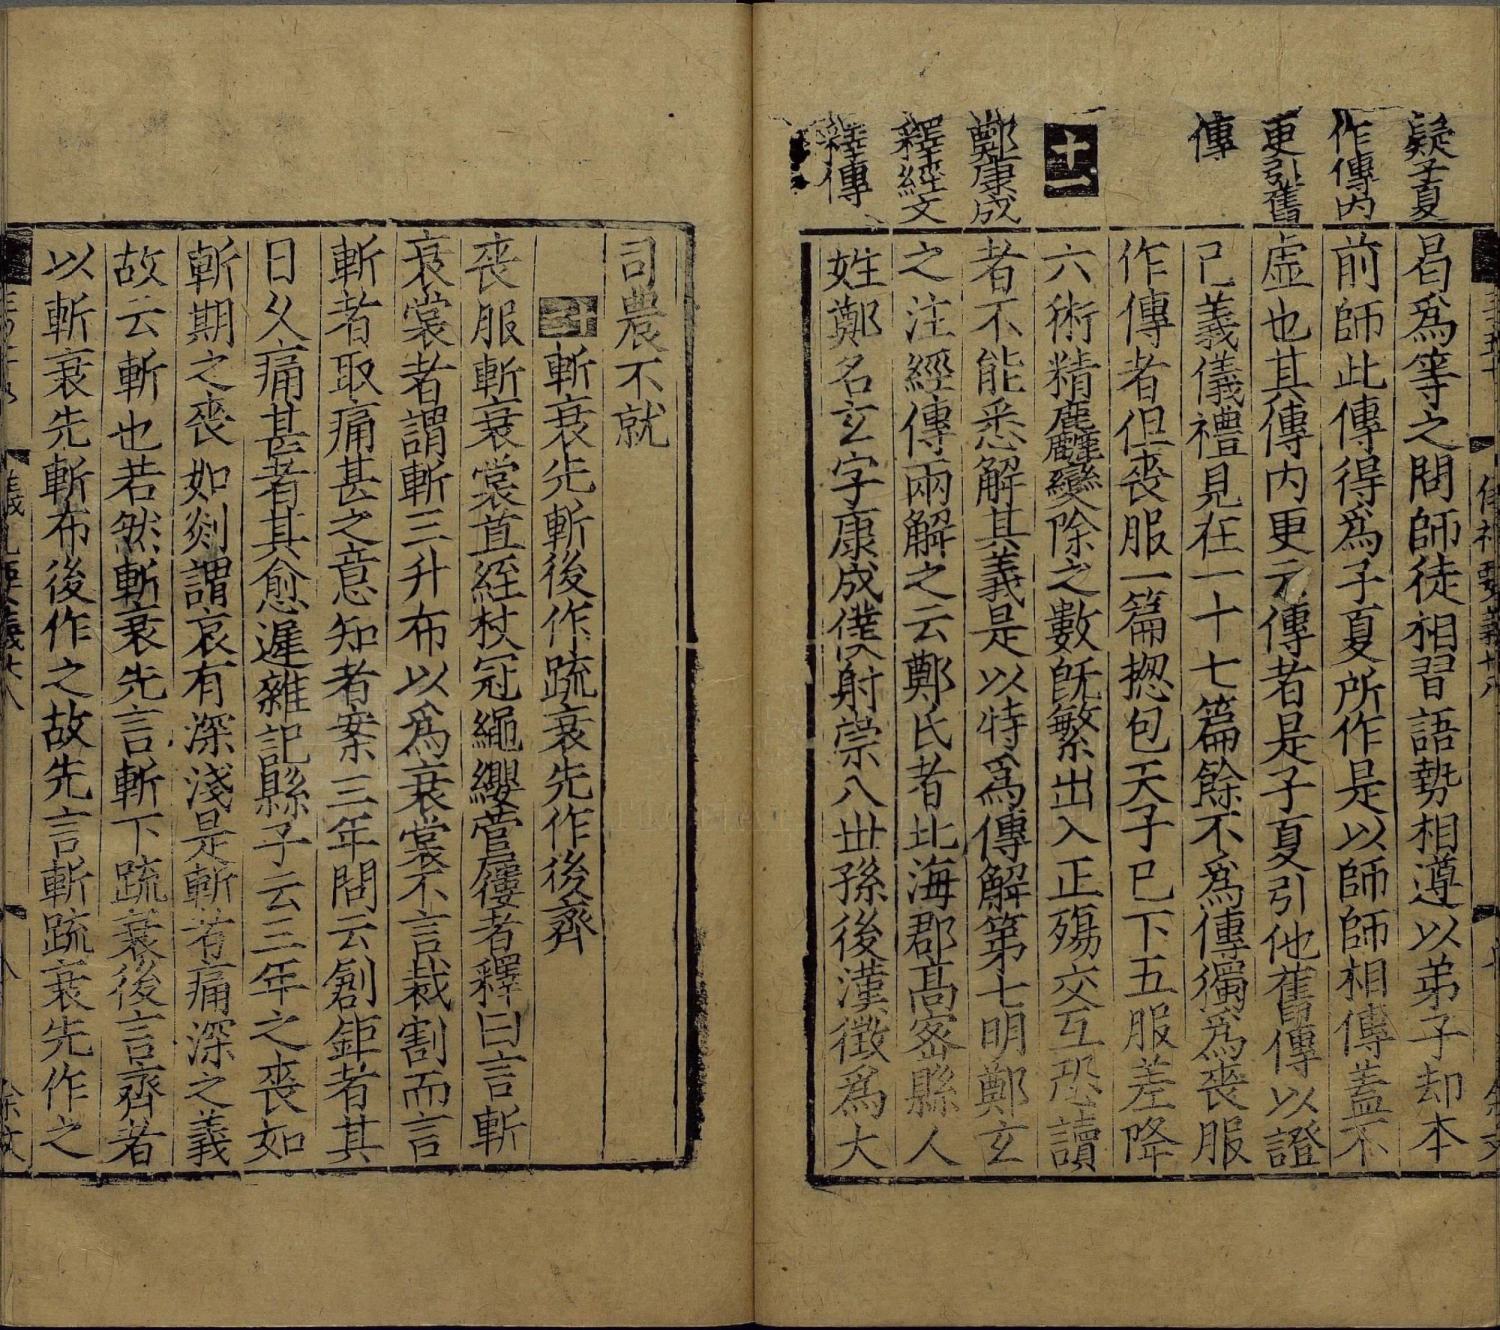 疑子夏
作傳内
更引舊
傳
十一
鄭康成
釋經文
釋傳
曷爲等之問師徒相習語勢相遵以弟子却本
前師此傳得爲子夏所作是以師師相傳蓋不
虚也其傳内更云傳者是子夏引他舊傳以證
己義儀禮見在一十七篇餘不爲傳獨爲喪服
作傳者但喪服一篇揔包天子已下五服差降
六術精麤變除之數旣繁出入正殤交互恐讀
者不能悉解其義是以特爲傳解第七明鄭玄
之注經傳兩解之云鄭氏者北海郡髙宻縣人
姓鄭名玄字康成僕射崇八丗孫後漢徵爲大
司農不就
斬衰先斬後作疏衰先作後齊
喪服斬衰裳苴絰杖冠繩纓菅屨者釋曰言斬
衰裳者謂斬三升布以爲衰裳不言裁割而言
斬者取痛甚之意知者案三年問云創鉅者其
日久痛甚者其愈遲雜記縣子云三年之喪如
斬期之喪如剡謂哀有深淺是斬者痛深之義
故云斬也若然斬衰先言斬下疏衰後言齊者
以斬衰先斬布後作之故先言斬疏衰先作之